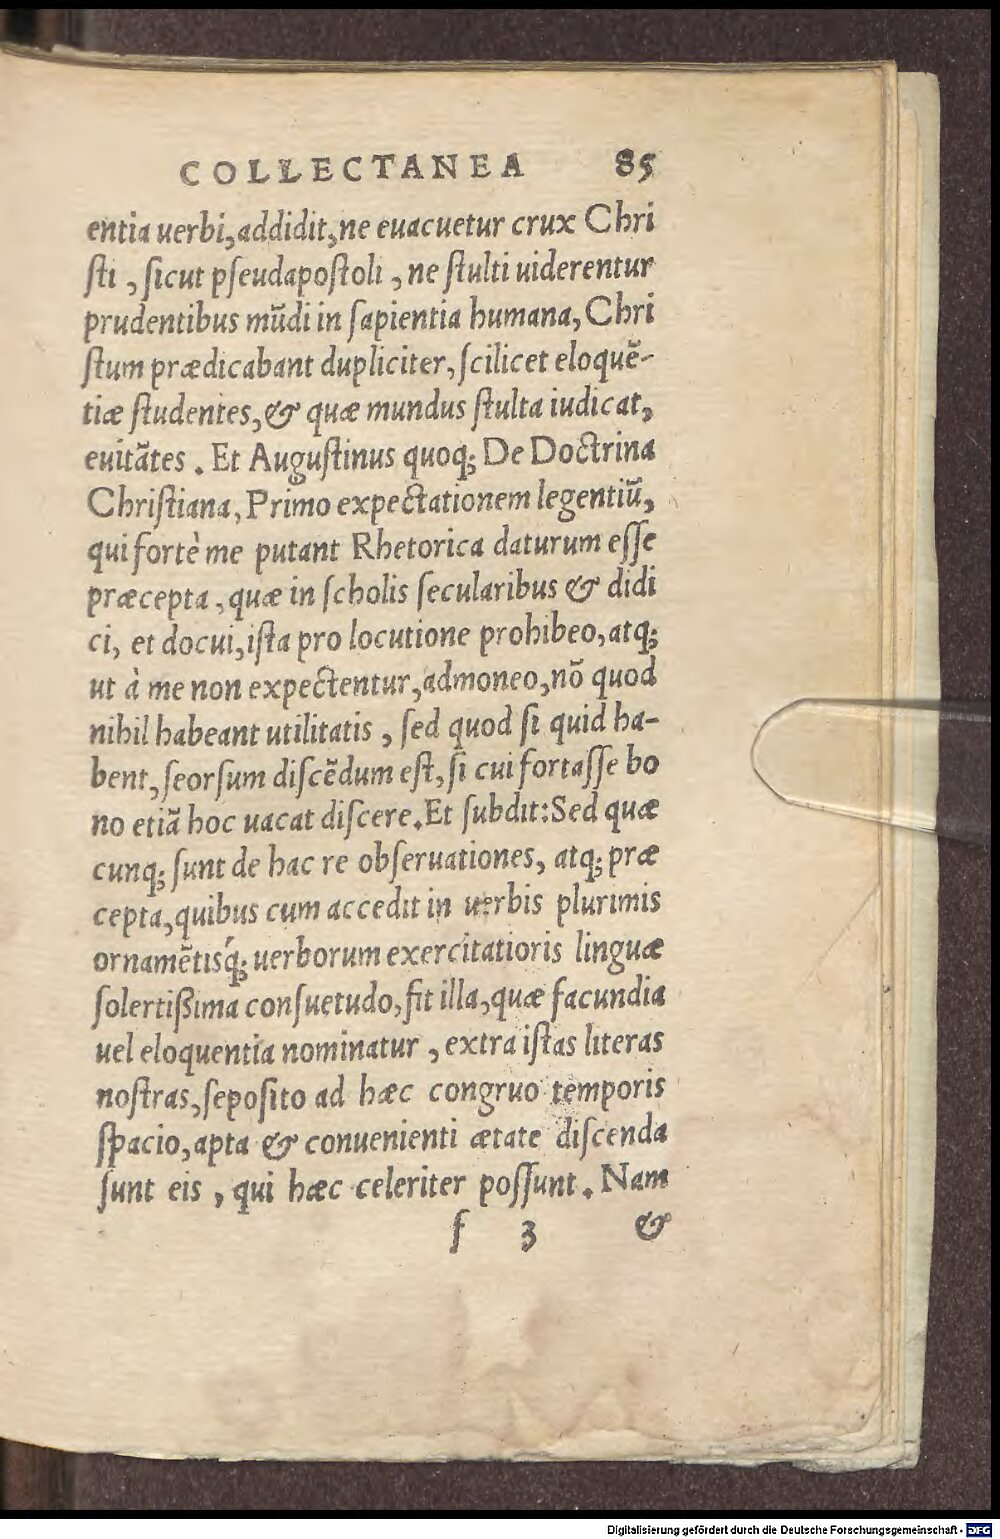 COLLECTANEA 85
entia uerbi, addidit, ne euacuetur crux Chri
ſti, ſicut pſeudapoſtoli, ne ſtulti uiderentur
prudentibus mũdi in ſapientia humana, Chri
ſtum prædicabant dupliciter, ſcilicet eloquẽ-
tiæ ſtudentes, & quæ mundus ſtulta iudicat,
euitãtes. Et Auguſtinus quoq; De Doctrina
Chriſtiana, Primo expectationem legentiũ,
qui fortè me putant Rhetorica daturum eſſe
præcepta, quæ in ſcholis ſecularibus & didi
ci, et docui, iſta pro locutione prohibeo, atq;
ut à me non expectentur, admoneo, nõ quod
nihil habeant utilitatis, ſed quod ſi quid ha-
bent, ſeorſum diſcẽdum eſt, ſi cui fortaſſe bo
no etiã hoc uacat diſcere. Et ſubdit: Sed quæ
cunq; ſunt de hac re obſeruationes, atq; præ
cepta, quibus cum accedit in uerbis plurimis
ornamẽtisq́; uerborum exercitatioris linguæ
ſolertißima conſuetudo, fit illa, quæ facundia
uel eloquentia nominatur, extra iſtas literas
noſtras, ſepoſito ad hæc congruo temporis
ſpacio, apta & conuenienti ætate diſcenda
ſunt eis, qui hæc celeriter poſſunt. Nam
f 3 &
Digitalisierung gefördert durch die Deutsche Forschungsgemeinschaft - DFG